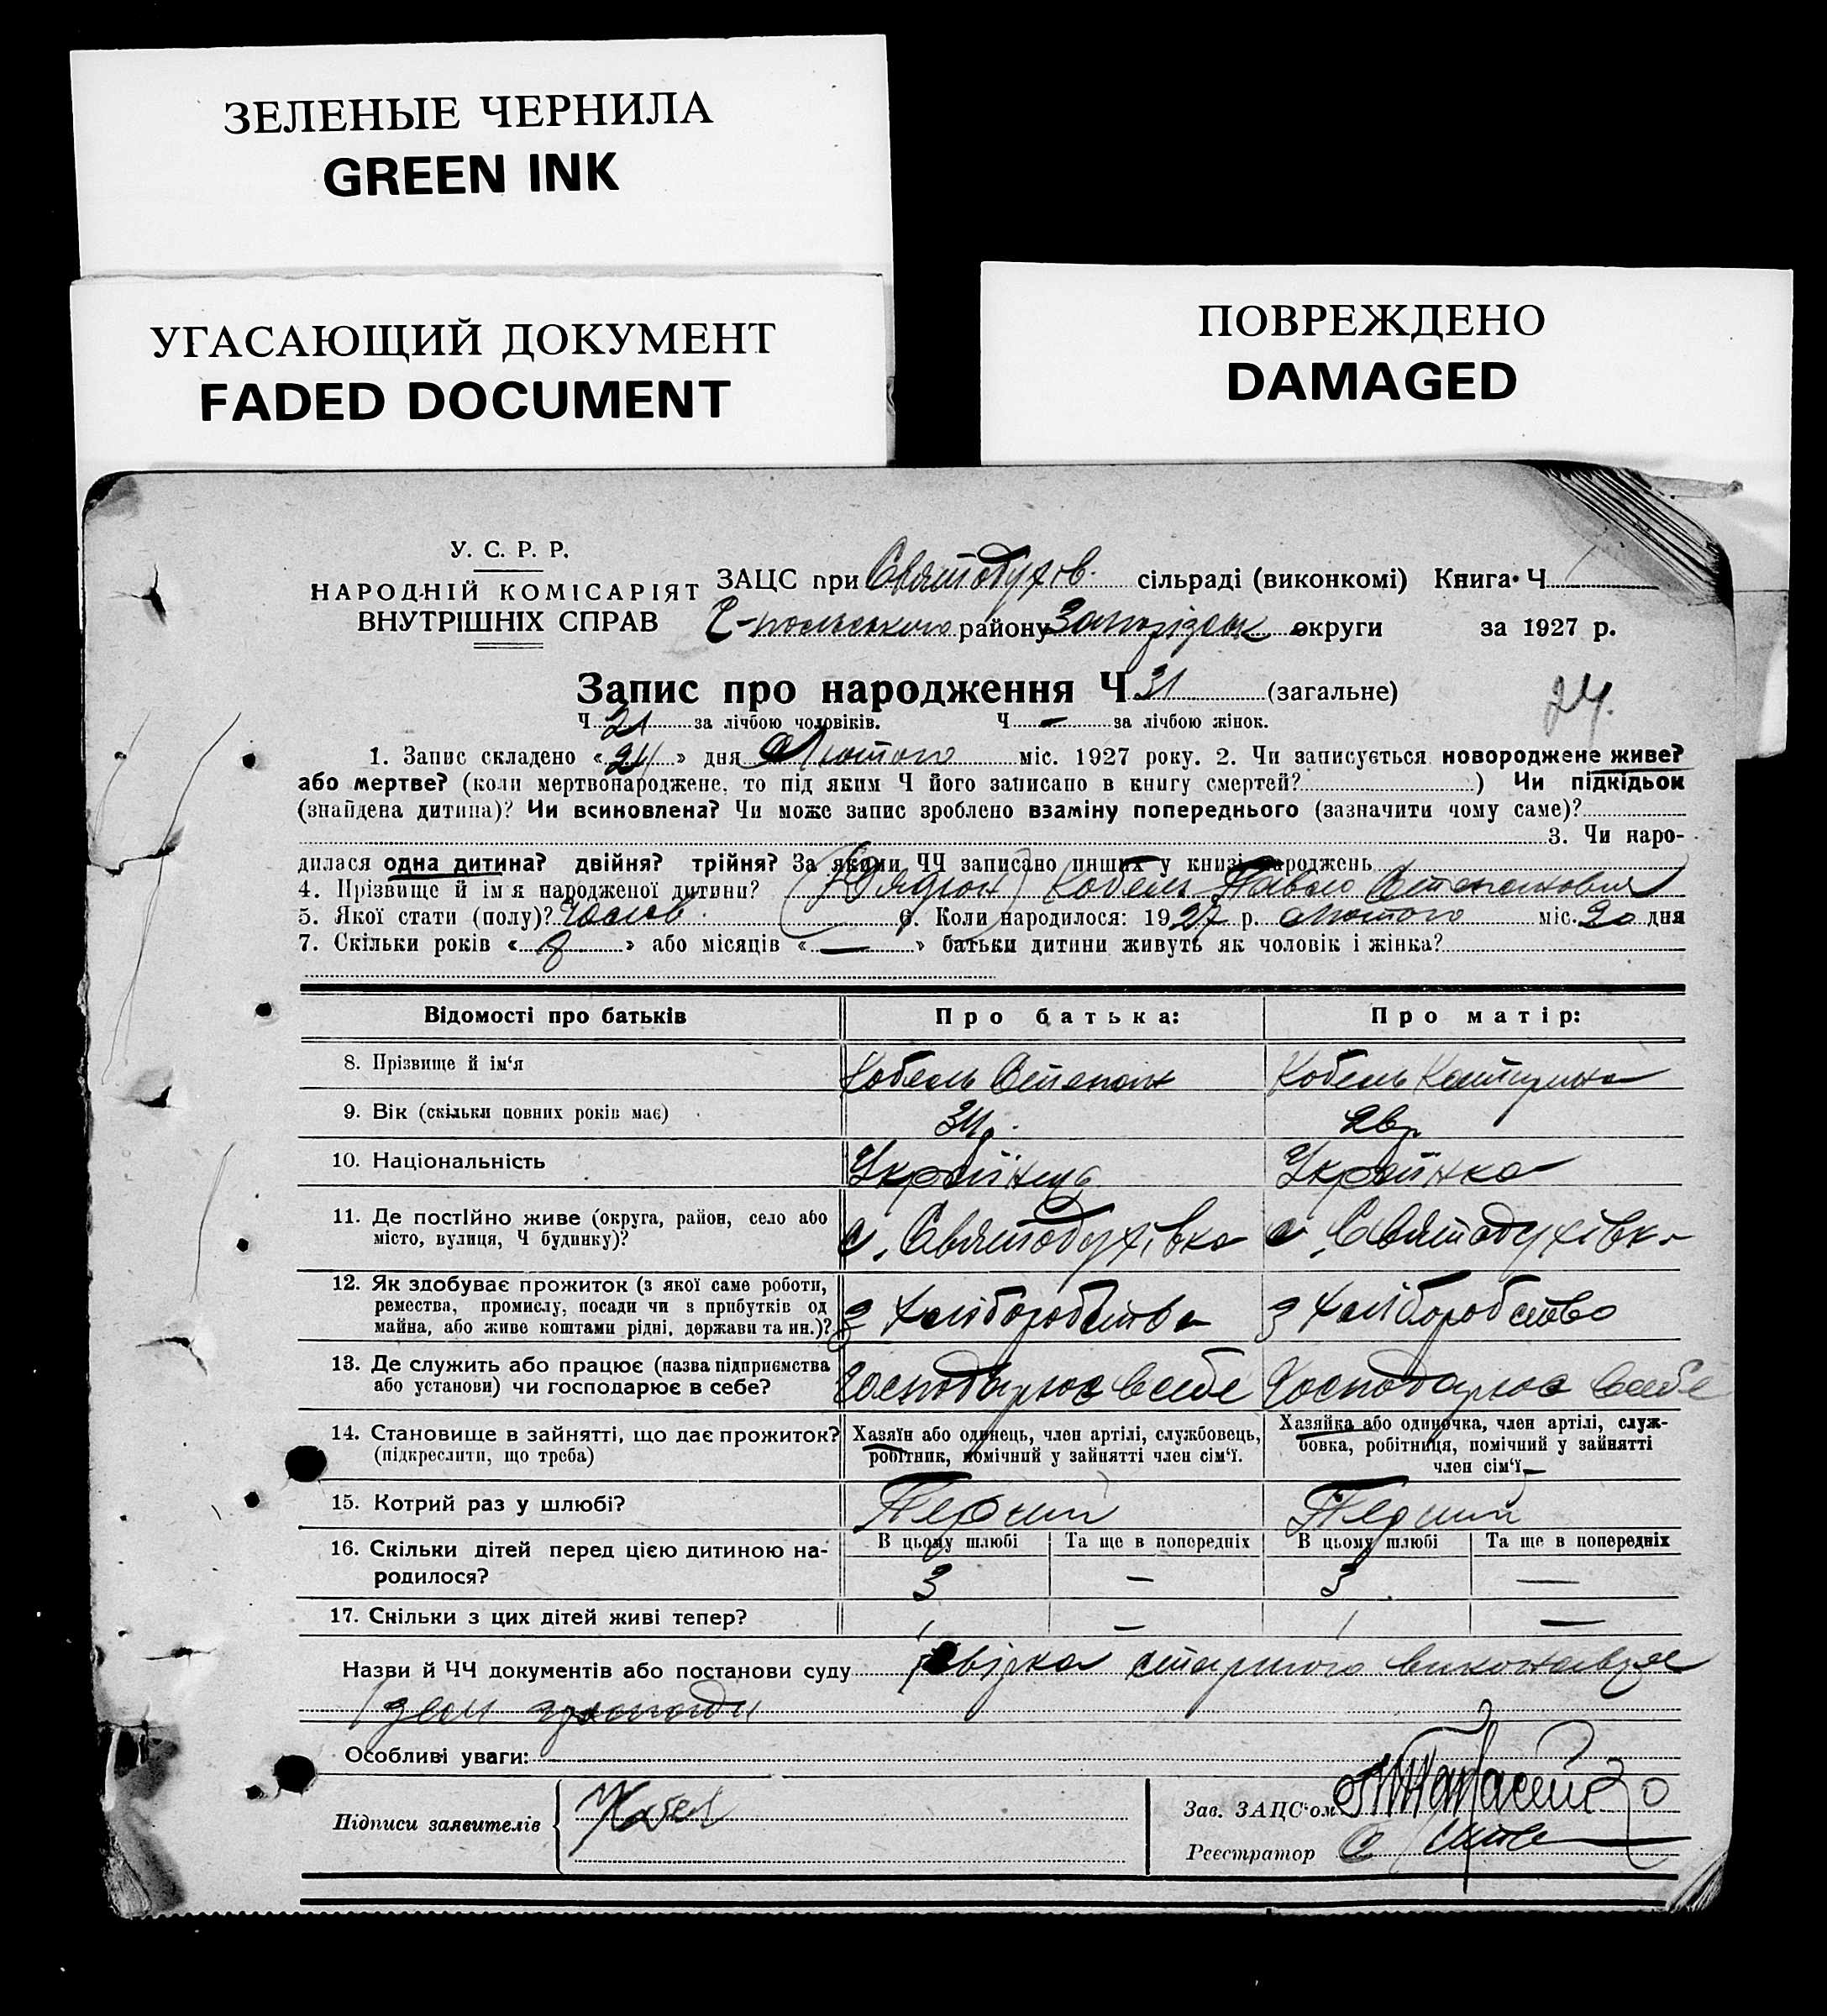 ЗЕЛЕНЫЕ ЧЕРНИЛА
GREEN INK
УГАСАЮЩИЙ ДОКУМЕНТ
FADED DOCUMENT
ПОВРЕЖДЕНО
DAMAGED
У. С. Р. Р.
НАРОДНІЙ КОМІСАРІЯТ
ВНУТРІШНІХ СПРАВ
ЗАЦС при Святодухів. сільраді (виконкомі) Книга Ч
району Запорізьк округи за 1927 р.
Запис про народження Ч 31 (загальне)
24.
Ч 21 за лічбою чоловіків. Ч — за лічбою жінок.
1. Запис складено « 24 » дня Лютого міс. 1927 року. 2. Чи записується новороджене живе?
або мертве? (коли мертвонароджене, то під яким Ч його записано в книгу смертей? ) Чи підкідьок
(знайдена дитина)? Чи всиновлена? Чи може запис зроблено взаміну попереднього (зазначити чому саме)?
3. Чи наро-
дилася одна дитина? двійня? трійня? За якими ЧЧ записано инших у книзі народжень
4. Прізвище й імя народженої дитини? Кобель Павло Степанович
5. Якої стати (полу)? Чолов. 6. Коли народилося: 1927 р. Лютого міс. 20 дня
7. Скільки років « 8 » або місяців « — » батьки дитини живуть як чоловік і жінка?
Відомості про батьків Про батька: Про матір:
8. Прізвище й ім'я Кобель Степан Кобель Катерина
9. Вік (скільки повних років має)
10. Національність Українець Українка
11. Де постійно живе (округа, район, село або
місто, вулиця, Ч будинку)? с. Святодухівка с. Святодухівка
12. Як здобуває прожиток (з якої саме роботи,
ремества, промислу, посади чи з прибутків од
майна, або живе коштами рідні, держави та ин.)? З хліборобства З хліборобство
13. Де служить або працює (назва підприємства
або установи) чи господарює в себе? Господарює в себе Господарює в себе
14. Становище в зайнятті, що дає прожиток?
(підкреслити, що треба)
Хазяїн або одинець, член артілі, службовець,
робітник, помічний у зайнятті член сім'ї.
Хазяйка або одиночка, член артілі, служ-
бовка, робітниця, помічний у зайнятті
член сім'ї
15. Котрий раз у шлюбі? Перший Перший
16. Скільки дітей перед цією дитиною на-
родилося?
В цьому шлюбі Та ще в попередніх В цьому шлюбі Та ще в попередніх
3 — 3 —
17. Скільки з цих дітей живі тепер? 1 — 1 —
Назви й ЧЧ документів або постанови суду старшого виконавця
зем громади
Особливі уваги:
Підписи заявителів Кобел
Зав. ЗАЦС'ом
Реєстратор